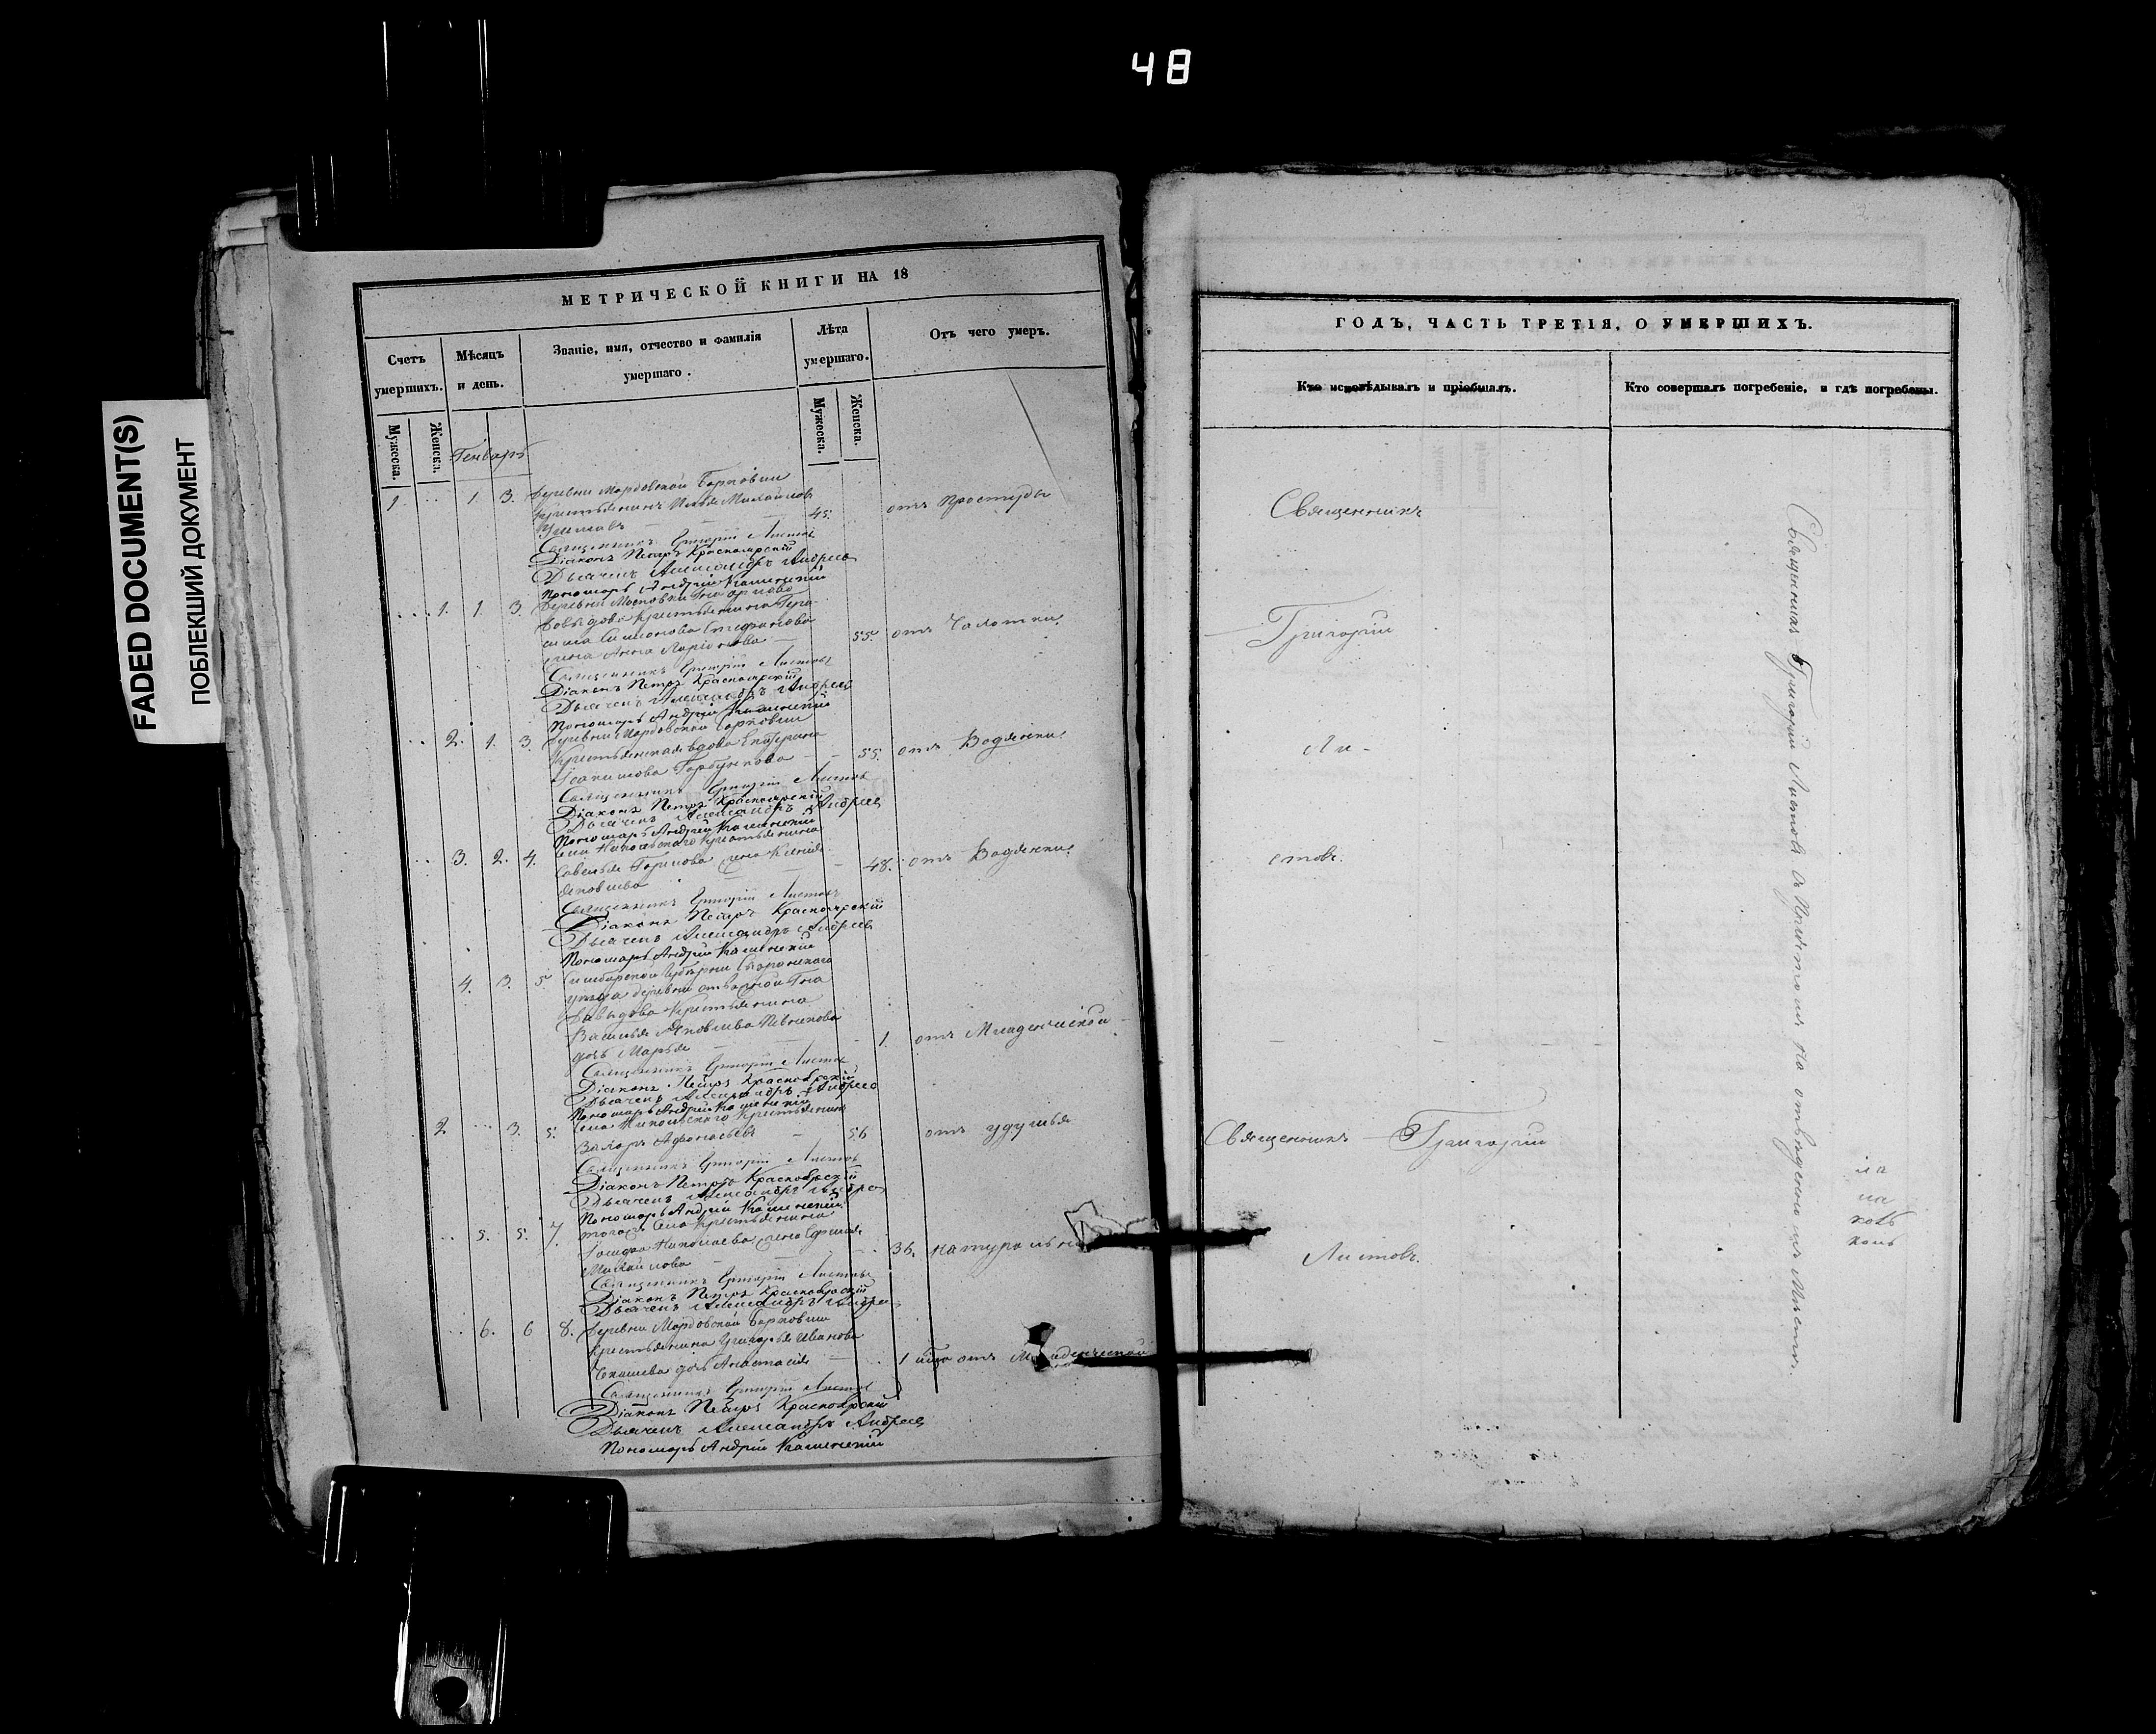 48
FADED DOCUMENT(S)
ПОБЛЕКШИЙ ДОКУМЕНТ
МЕТРИЧЕСКОЙ КНИГИ НА 18
Счетъ умершихъ.
Мѣсяцъ и день.
Званіе, имя, отчество и фамилія умершаго.
Лѣта умершаго.
Отъ чего умеръ.
Мужеска.
Женска.
Мужеска.
Женска.
Генварь
1 1 3. Деревни Мордовской Борковки
крестьянинъ Илья Михайловъ
45. отъ простуды
Священникъ Григорій Листовъ
Діаконъ Петръ Красноярскій
Дьячекъ Александръ Андреевъ
Пономарь Андрей Каменскій
1. 1 3. Деревни Московки Гна Орлова
Давыдова крестьянина
Симіонова
жена Анна 55. отъ Чахотки
Священникъ Григорій Листовъ
Діаконъ Петръ Красноярскій
Дьячекъ Александръ Андреевъ
Пономарь Андрей Каменскій
2. 1. 3. Деревни Мордовской Борковки
Крестьянская вдова Екатерина
Горбункова 55. отъ Водянки
Священникъ Григорій Листовъ
Діаконъ Петръ Красноярскій
Дьячекъ Александръ Андреевъ
Пономарь Андрей Каменскій
3. 2. 4. Села Никольскаго Крестьянина
Савелья жена Ксенія
Яковлева 48. отъ Водянки
Священникъ Григорій Листовъ
Діаконъ Петръ Красноярскій
Дьячекъ Александръ Андреевъ
Пономарь Андрей Каменскій
4. 3. 5 Симбирской Губерніи
уезда деревни Гна
Давыдова Крестьянина
Василья Яковлева
дочь Марья 1. отъ Младенческой
Священникъ Григорій Листовъ
Діаконъ Петръ Красноярскій
Дьячекъ Александръ Андреевъ
Пономарь Андрей Каменскій
2. 3. 5. Села Никольскаго Крестьянинъ
Захаръ Афонасьевъ 56 отъ удушья
Священникъ Григорій Листовъ
Діаконъ Петръ Красноярскій
Дьячекъ Александръ Андреевъ
Пономарь Андрей Каменскій
5. 5. 7. тогожъ села Крестьянина
Николаева жена
Михайлова 36. натурально
Священникъ Григорій Листовъ
Діаконъ Петръ Красноярскій
Дьячекъ Александръ Андреевъ
6. 6 8. Деревни Мордовской Борковки
крестьянина Григорья Иванова
дочь Анастасія 1 отъ Младенческой
Священникъ Григорій Листовъ
Діаконъ Петръ Красноярскій
Дьячекъ Александръ Андреевъ
Пономарь Андрей Каменскій
ГОДЪ, ЧАСТЬ ТРЕТІЯ, О УМЕРШИХЪ.
Кто исповѣдывалъ и пріобщалъ.
Кто совершалъ погребеніе, и гдѣ погребены.
Священникъ
Григорій
Ли-
стовъ.
Священникъ Григорій
Листовъ.
Священникъ Григорій Листовъ съ Причтомъ На отведенномъ Месте.